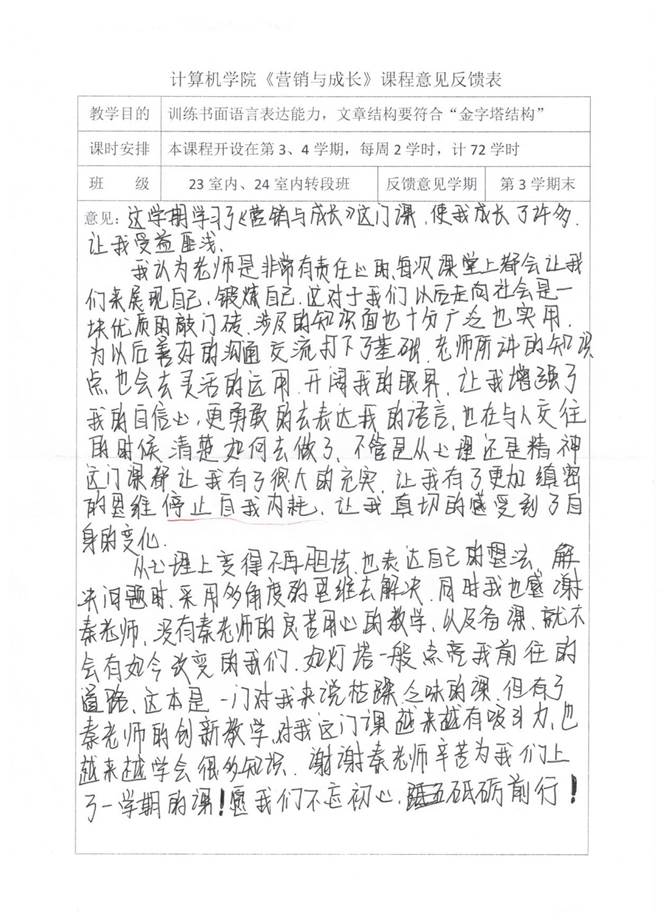 计算机学院《营销与成长》课程意见反馈表
教学目的 训练书面语言表达能力，文章结构要符合“金字塔结构”
课时安排 本课程开设在第 3、4 学期，每周 2 学时，计 72 学时
班 级 23 室内、24 室内转段班 反馈意见学期 第 3 学期末
意见：这学期学习了《营销与成长》这门课，使我成长了许多，
让我受益匪浅．
我认为老师是非常有责任心的，每次课堂上都会让我
们来展现自己，锻炼自己．这对于我们以后走向社会是一
块优质的敲门砖．涉及的知识面也十分广泛也实用．
为以后善好的沟通交流打下了基础．老师所讲的知识
点也会去灵活的运用．开阔我的眼界，让我增强了
我的自信心，更勇敢的去表达我的语言，也在与人交往
的时候清楚如何去做了．不管是从心理还是精神
这门课都让我有了很大的充实．让我有了更加缜密
的思维，停止自我内耗，让我真切的感受到了自
身的变化．
从心理上变得不再胆怯，也表达自己的想法．解
决问题时，采用多角度的思维去解决．同时我也感谢
秦老师，没有秦老师的良苦用心的教学，以及备课，就不
会有如今改变的我们．如灯塔一般点亮我前往的
道路．这本是一门对我来说枯燥乏味的课，但有了
秦老师的创新教学，对我这门课越来越有吸引力，也
越来越学会很多知识．谢谢秦老师辛苦为我们上
了一学期的课！愿我们不忘初心，砥砺前行！